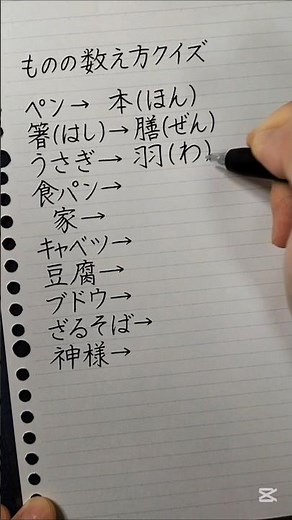 ものの数え方クイズ
ペン→ 本(ほん)
箸(はし)→膳(ぜん)
うさぎ→ 羽(わ)
食パン→
家→
キャベツ→
豆腐→
ブドウ→
ざるそば→
神様→
CapCut